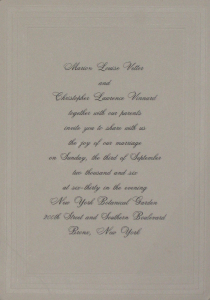 Marion Louise Vetter
and
Christopher Laurence Vineard
together with our parents
create you to share with us
the joy of our marriage
on Sunday, the third of September
two thousand and six
at six-thirty in the evening
New York Botanical Garden
200th Street and Southern Boulevard
Bronx, New York